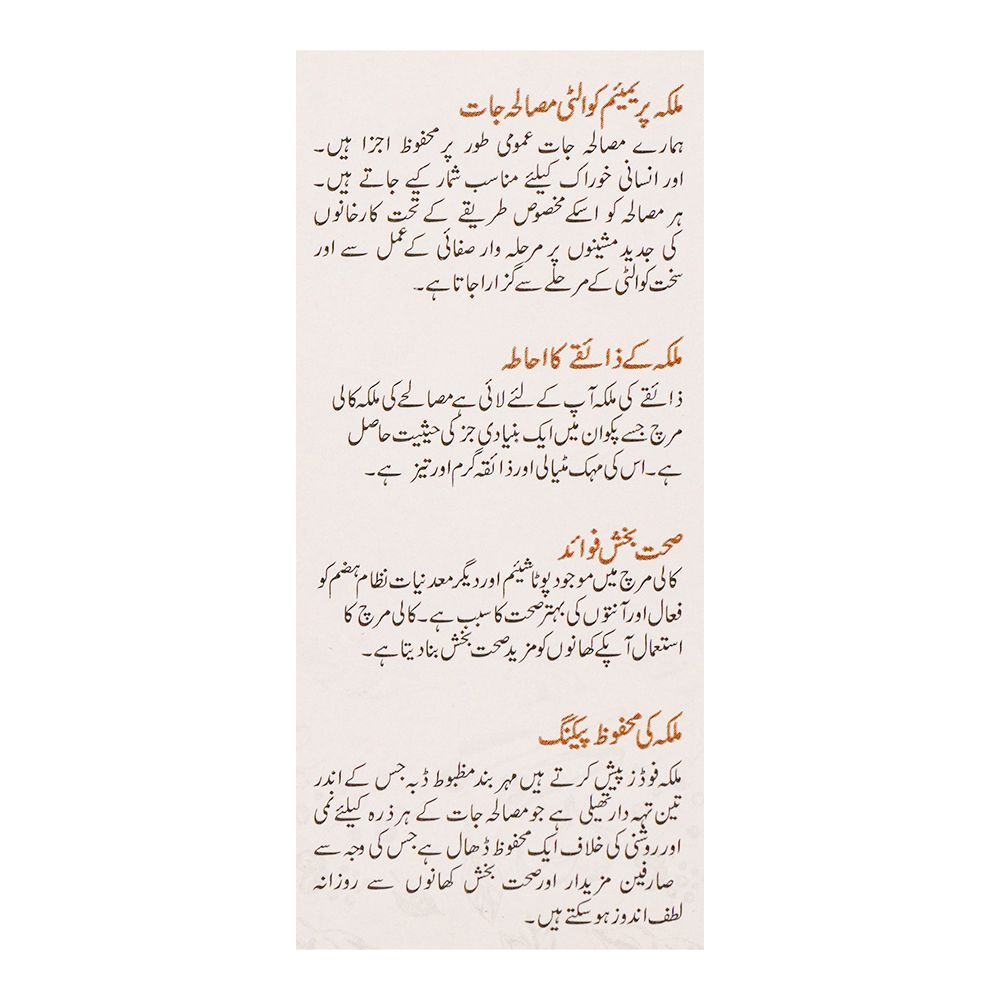 ملکہ پریمیئم کوالٹی مصالحہ جات
ہمارے مصالحہ جات عمومی طور پر محفوظ اجزا ہیں۔
اور انسانی خوراک کیلئے مناسب شمار کیے جاتے ہیں۔
ہر مصالحہ کو اسکے مخصوص طریقے کے تحت کارخانوں
کی جدید مشینوں پر مرحلہ وار صفائی کے عمل سے اور
سخت کوالٹی کے مرحلے سے گزارا جاتا ہے۔
ملکہ کے ذائقے کا احاطہ
ذائقے کی ملکہ آپ کے لئے لائی ہے مصالحے کی ملکہ کالی
مرچ جسے پکوان میں ایک بنیادی جز کی حیثیت حاصل
ہے۔ اس کی مہک مٹیالی اور ذائقہ گرم اور تیز ہے۔
صحت بخش فوائد
کالی مرچ میں موجود پوٹاشیئم اور دیگر معدنیات نظام ہضم کو
فعال اور آنتوں کی بہتر صحت کا سبب ہے۔ کالی مرچ کا
استعمال آپکے کھانوں کو مزید صحت بخش بنا دیتا ہے۔
ملکہ کی محفوظ پیکنگ
ملکہ فوڈز پیش کرتے ہیں مہر بند مظبوط ڈبہ جس کے اندر
تین تہہ دار تھیلی ہے جو مصالحہ جات کے ہر ذرہ کیلئے نمی
اور روشنی کی خلاف ایک محفوظ ڈھال ہے جس کی وجہ سے
صارفین مزیدار اور صحت بخش کھانوں سے روزانہ
لطف اندوز ہو سکتے ہیں۔